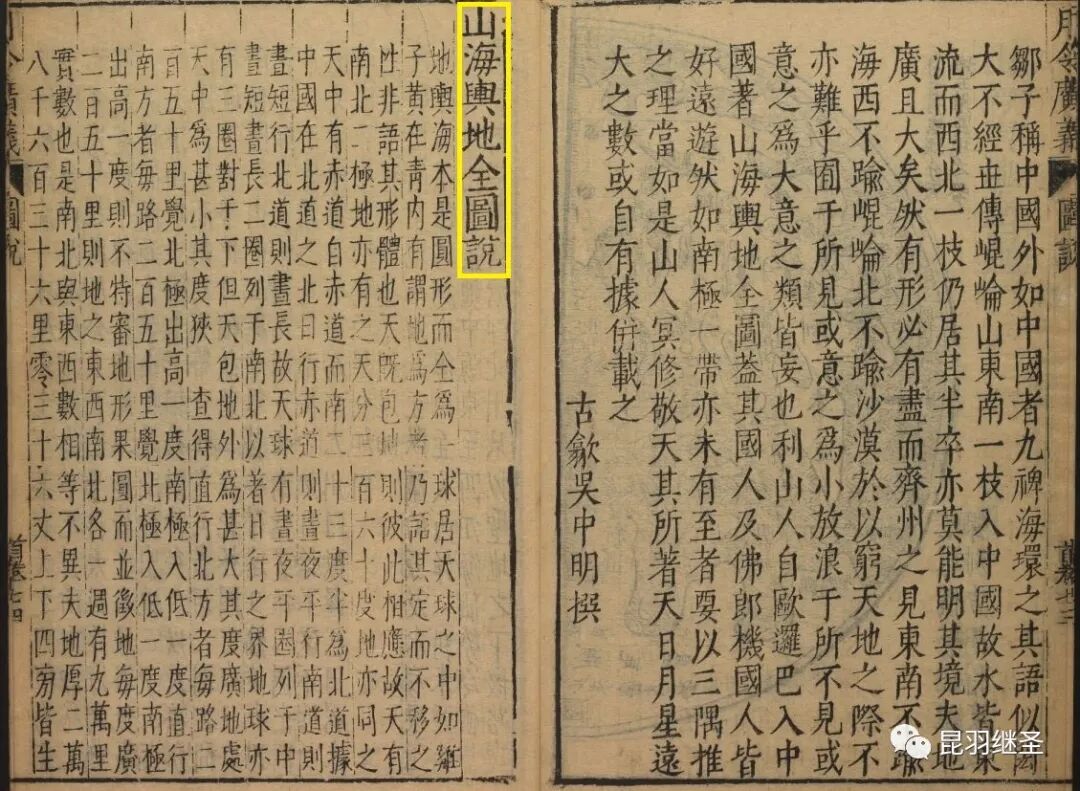 月令廣義 圖說
鄒子稱中國外如中國者九裨海環之其語似閎
大不經世傳崐崘山東南一枝入中國故水皆東
流而西北一枝仍居其半卒亦莫能明其境夫地
廣且大矣然有形必有盡而齊州之見東南不踰
海西不踰崐崘北不踰沙漠於以窮天地之際不
亦難乎囿于所見或意之為小放浪于所不見或
意之為大意之類皆妄也利山人自歐邏巴入中
國著山海輿地全圖蓋其國人及佛郎機國人皆
好遠遊然如南極一帶亦未有至者要以三隅推
之理當如是山人冥修敬天其所著天日月星遠
大之數或自有據併載之
古歙吳中明撰
山海輿地全圖說
地與海本是圓形而全為一球居天球之中如雞
子黃在青內有謂地為方者乃語其定而不移之
性非語其形體也天既包地則彼此相應故天有
南北二極地亦有之天分三百六十度地亦同之
天中有赤道自赤道而南二十三度半為北道據
中國在北道之北日行赤道則晝夜平行南道則
晝短行北道則晝長故天球有晝夜平圈列于中
晝短晝長二圈列于南北以著日行之界地球亦
有三圈對于下但天包地外為甚大其度廣地處
天中為甚小其度狹 查得直行北方者每路二
百五十里覺北極出高一度南極入低一度直行
南方者每路二百五十里覺北極入低一度南極
出高一度則不特審地形果圓而並徵地每度廣
二百五十里則地之東西南北各一週有九萬里
實數也是南北與東西數相等不異夫地厚二萬
八千六百三十六里零三十六丈上下四旁皆生
圖說
昆羽继圣